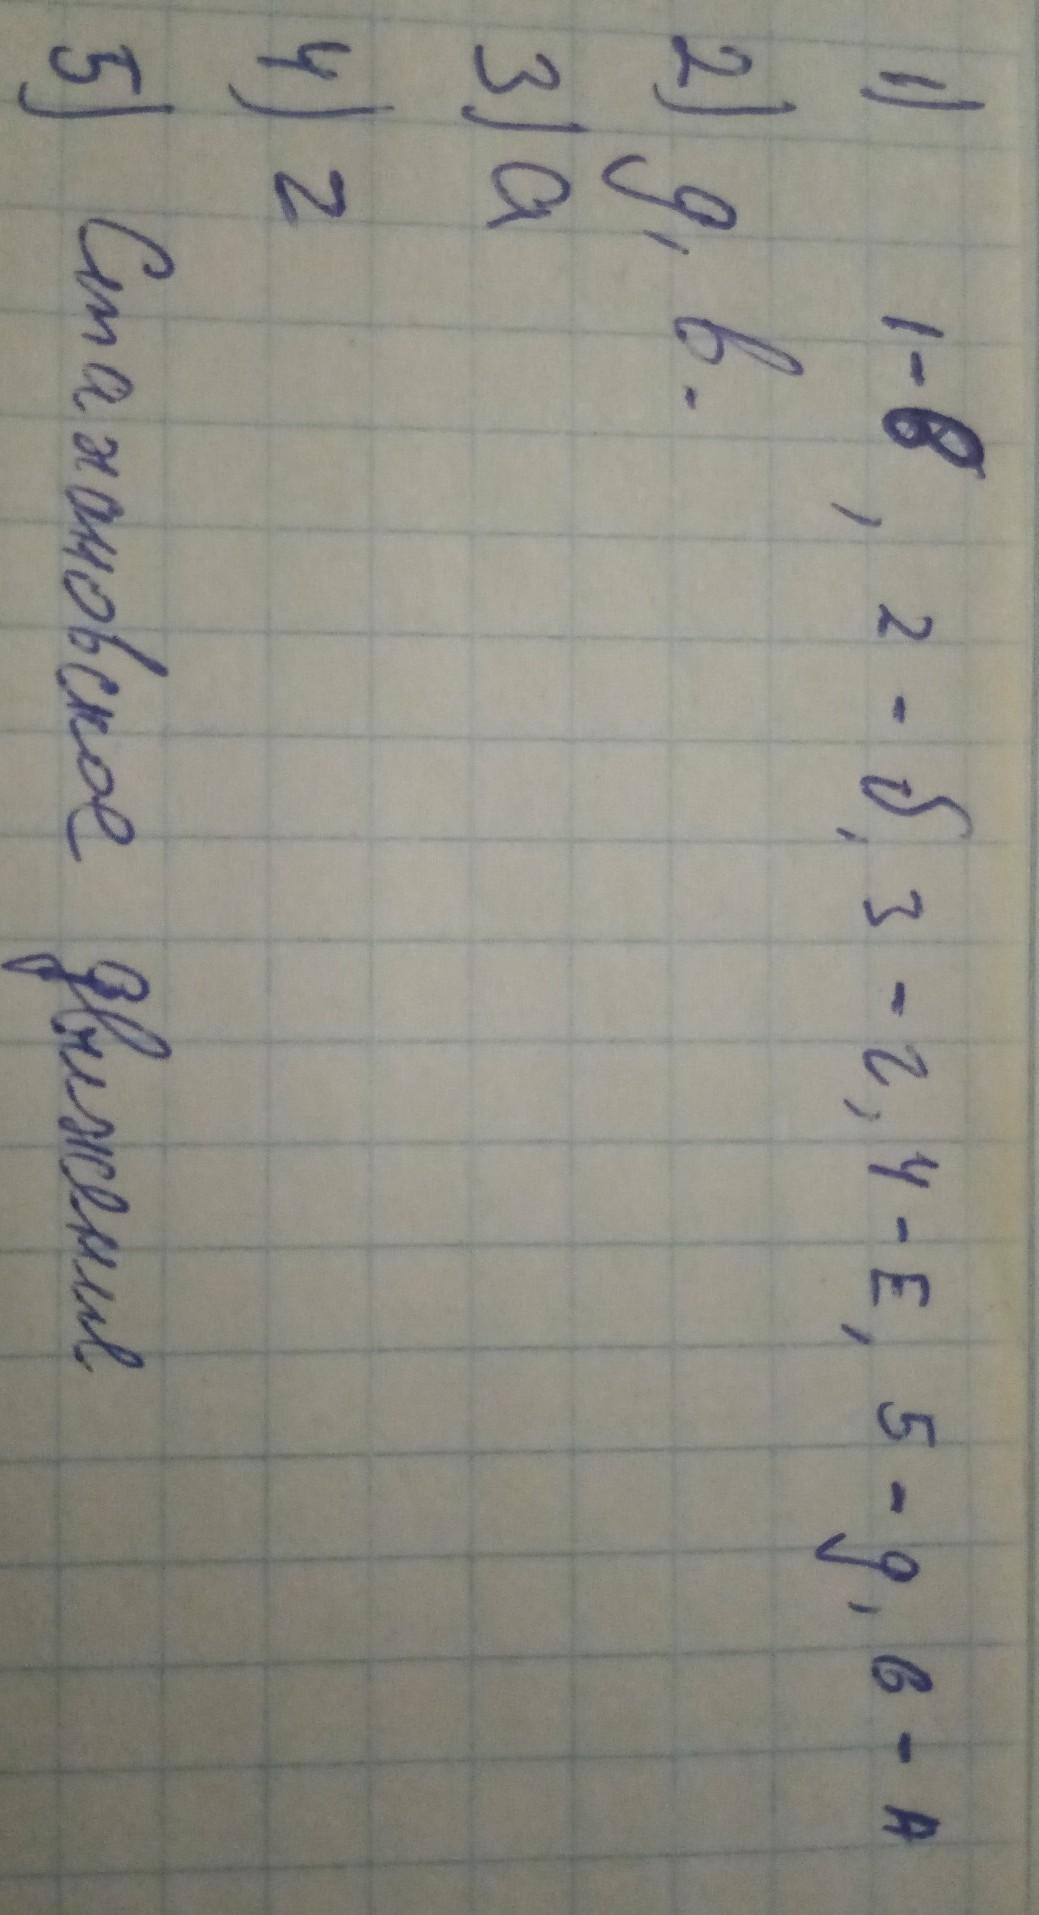 1) 1-в, 2-б, 3-г, 4-Е, 5-д, 6-А
2) д, в.
3) а
4) г
5) Стахановское движение